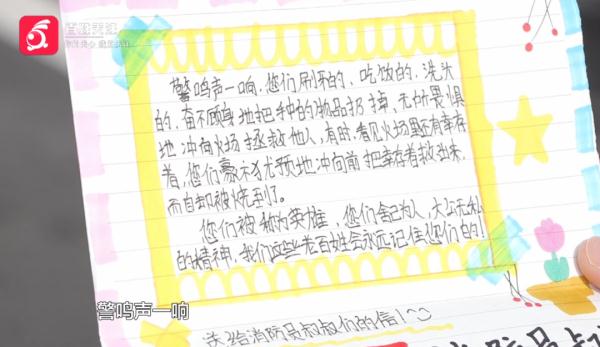 百姓关注
警鸣声一响,您们刷牙的、吃饭的、洗头
的,奋不顾身地把手中的物品扔掉,无所畏惧
地冲向火场拯救他人,有时看见火场里还有幸存
着,您们豪不犹预地冲向前把幸存着救出来,
而自却被烧到了。
您们被称为英雄,您们舍己为人,大公无私
的精神,我们这些老百姓会永远记住您们的!
警鸣声一响
送给消防员叔叔们的信!